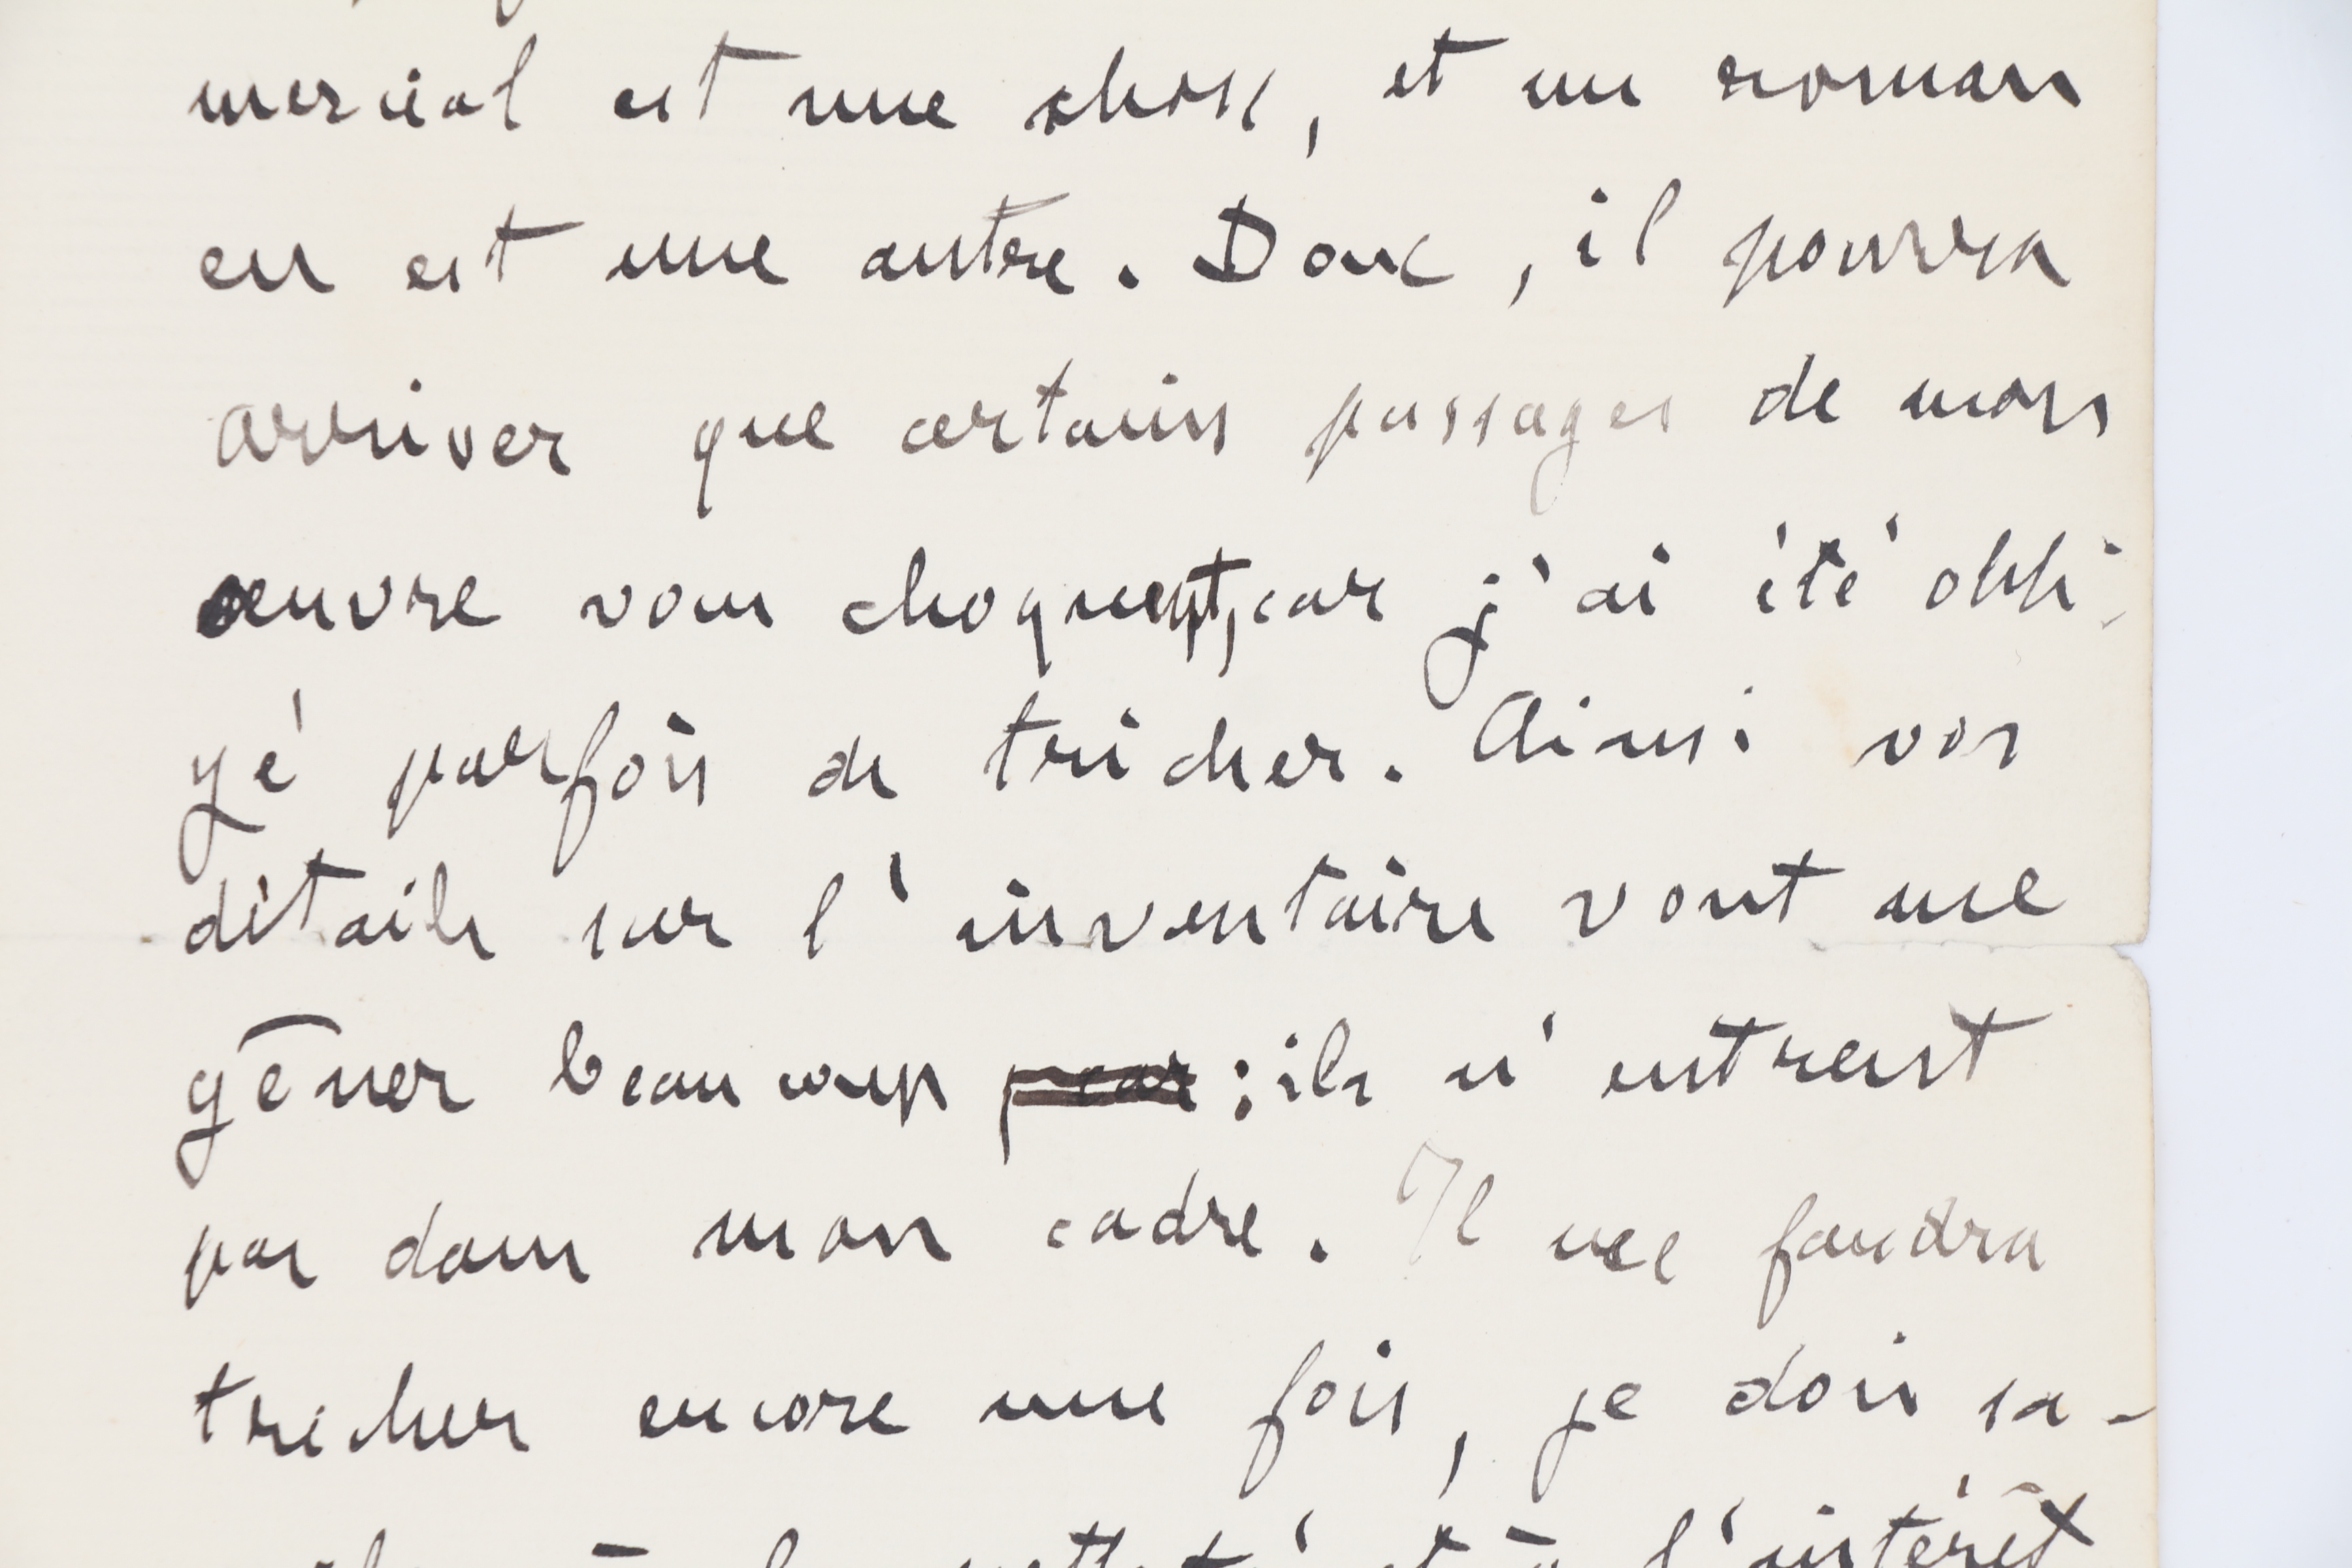 mercial est une chose, et un roman
en est une autre. Donc, il pourra
arriver que certains passages de mon
œuvre vous choquent, car j'ai été obli-
gé parfois de tricher. Ainsi vos
détails sur l'inventaire vont me
gêner beaucoup ; ils n'entrent
pas dans mon cadre. Il me faudra
tricher encore une fois, je dois sa-
à la netteté et à l'intérêt